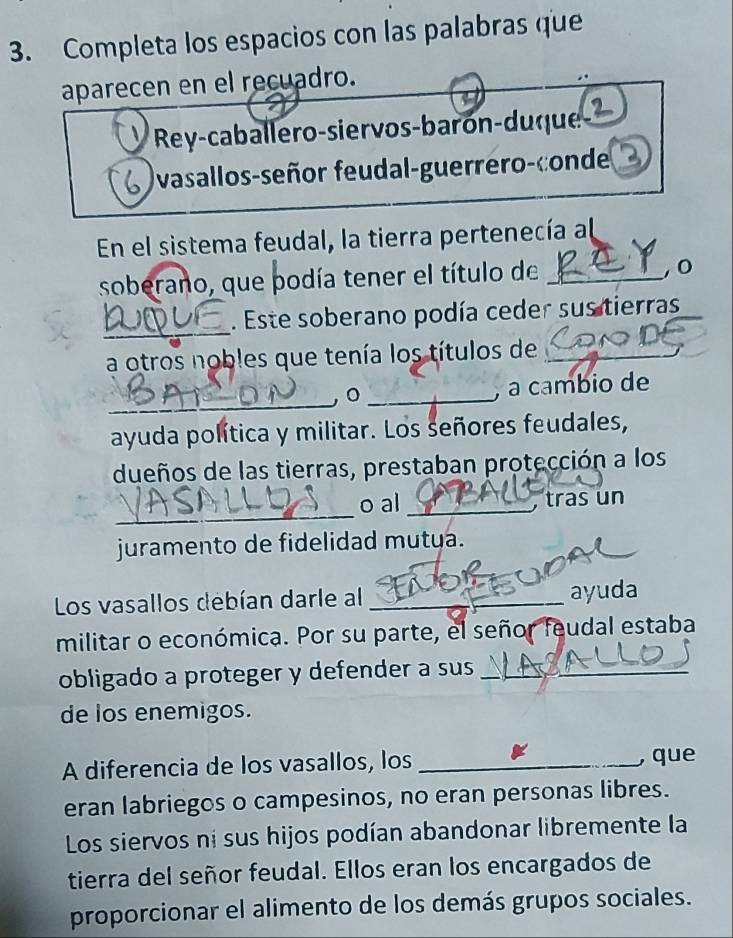 3. Completa los espacios con las palabras que
aparecen en el recuadro.
1 Rey-caballero-siervos-barón-duque- 2
6 vasallos-señor feudal-guerrero-conde 3
En el sistema feudal, la tierra pertenecía al
soberano, que podía tener el título de REY, o
DUQUE. Este soberano podía ceder sus tierras
a otros nobles que tenía los títulos de CONDE,
BARON, o ________, a cambio de
ayuda política y militar. Los señores feudales,
dueños de las tierras, prestaban protección a los
VASALLOS o al CABALLERO, tras un
juramento de fidelidad mutua.
Los vasallos debían darle al SEÑOR FEUDAL ayuda
militar o económica. Por su parte, el señor feudal estaba
obligado a proteger y defender a sus VASALLOS
de los enemigos.
A diferencia de los vasallos, los ________, que
eran labriegos o campesinos, no eran personas libres.
Los siervos ni sus hijos podían abandonar libremente la
tierra del señor feudal. Ellos eran los encargados de
proporcionar el alimento de los demás grupos sociales.